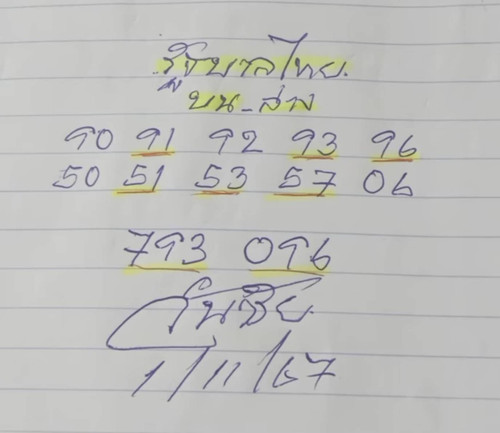 รัฐบาลไทย
บน-ล่าง
90 91 92 93 96
50 51 53 57 06
793 096
วันชัย
1/11/67